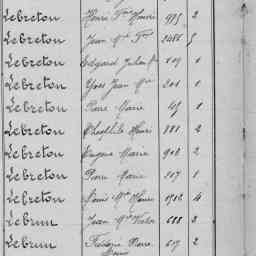 Lebreton Henri Fois Honoré 975 2
Lebreton Jean Mie Fois 2486 5
Lebreton Edgard Julien 109 1
Lebreton Yves Jean Mie 201 1
Lebreton Pierre Marie 45 1
Lebreton Théophile Henri 881 2
Lebreton Eugène Marie 908 2
Lebreton Pierre Marie 207 1
Lebreton Louis Mie 1702 4
Lebrun Jean Mie Victor 688 2
Lebrun Pierre 619 2
Marie